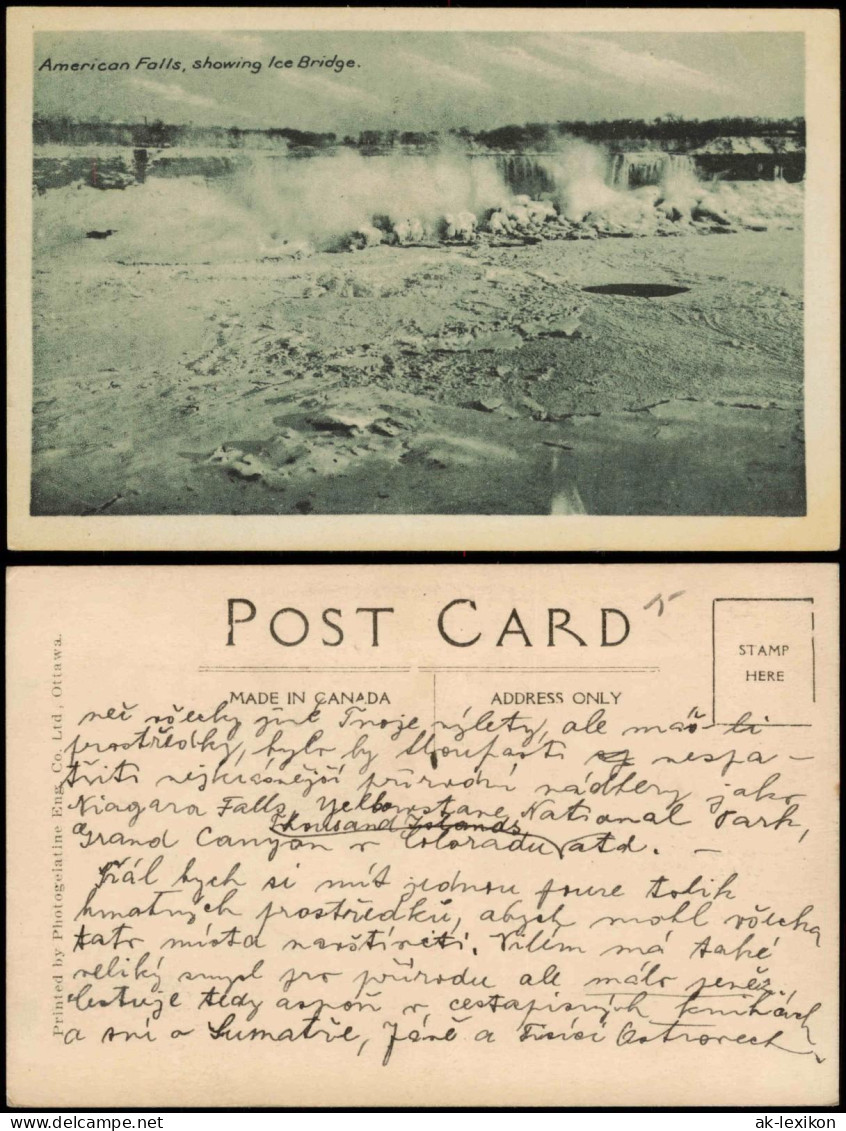 American Falls, showing Ice Bridge.
POST CARD
STAMP
HERE
MADE IN CANADA
ADDRESS ONLY
Printed by Photogelatine Eng. Co. Ltd., Ottawa.
než všecky jiné Tvoje výlety, ale máš-li
prostředky, bylo by hloupostí nespa-
třiti nejkrásnější přírodní nádhery jako
Niagara Falls, Yellowstane National Park,
Thousand Islands,
Grand Canyon v Coloradu atd. –
Přál bych si mít jednou pouze tolik
hmatných prostředků, abych mohl všecka
tato místa navštíviti. Vilém má také
veliký smysl pro přírodu ale málo peněz,
cestuje tedy aspoň v cestopisných knihách
a sní o Sumatře, Jávě a Tisící Ostrovech
ak-lexikon